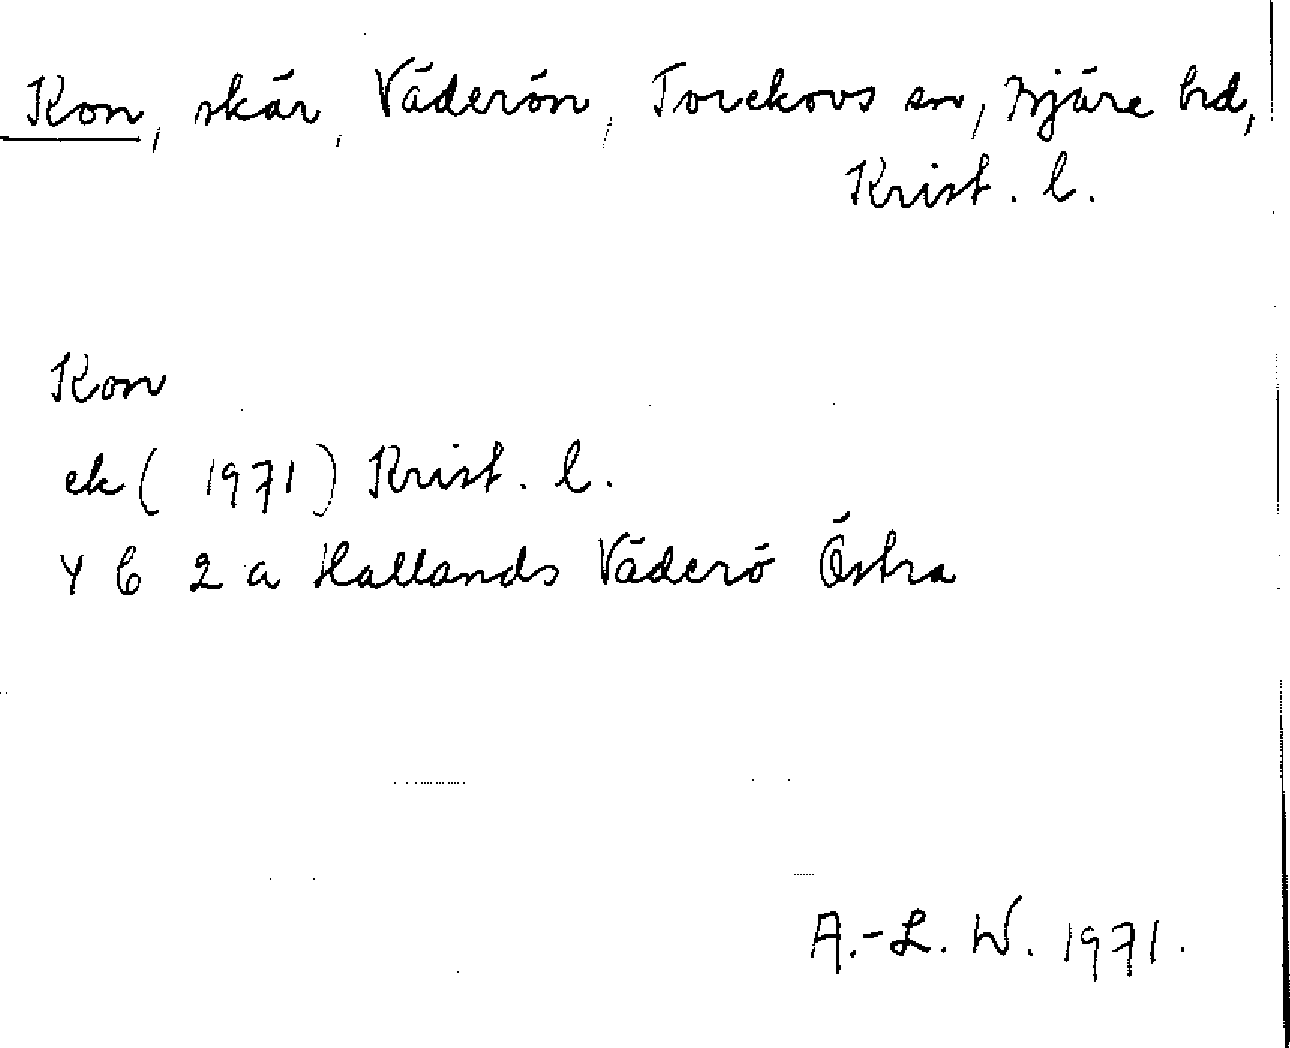 Kon, skär, Väderön, Torekovs sn, Bjäre hd,
Krist. l.
Kon
ek (1971) Krist. l.
4 C 2 a Hallands Väderö Östra
A.-L. W. 1971.